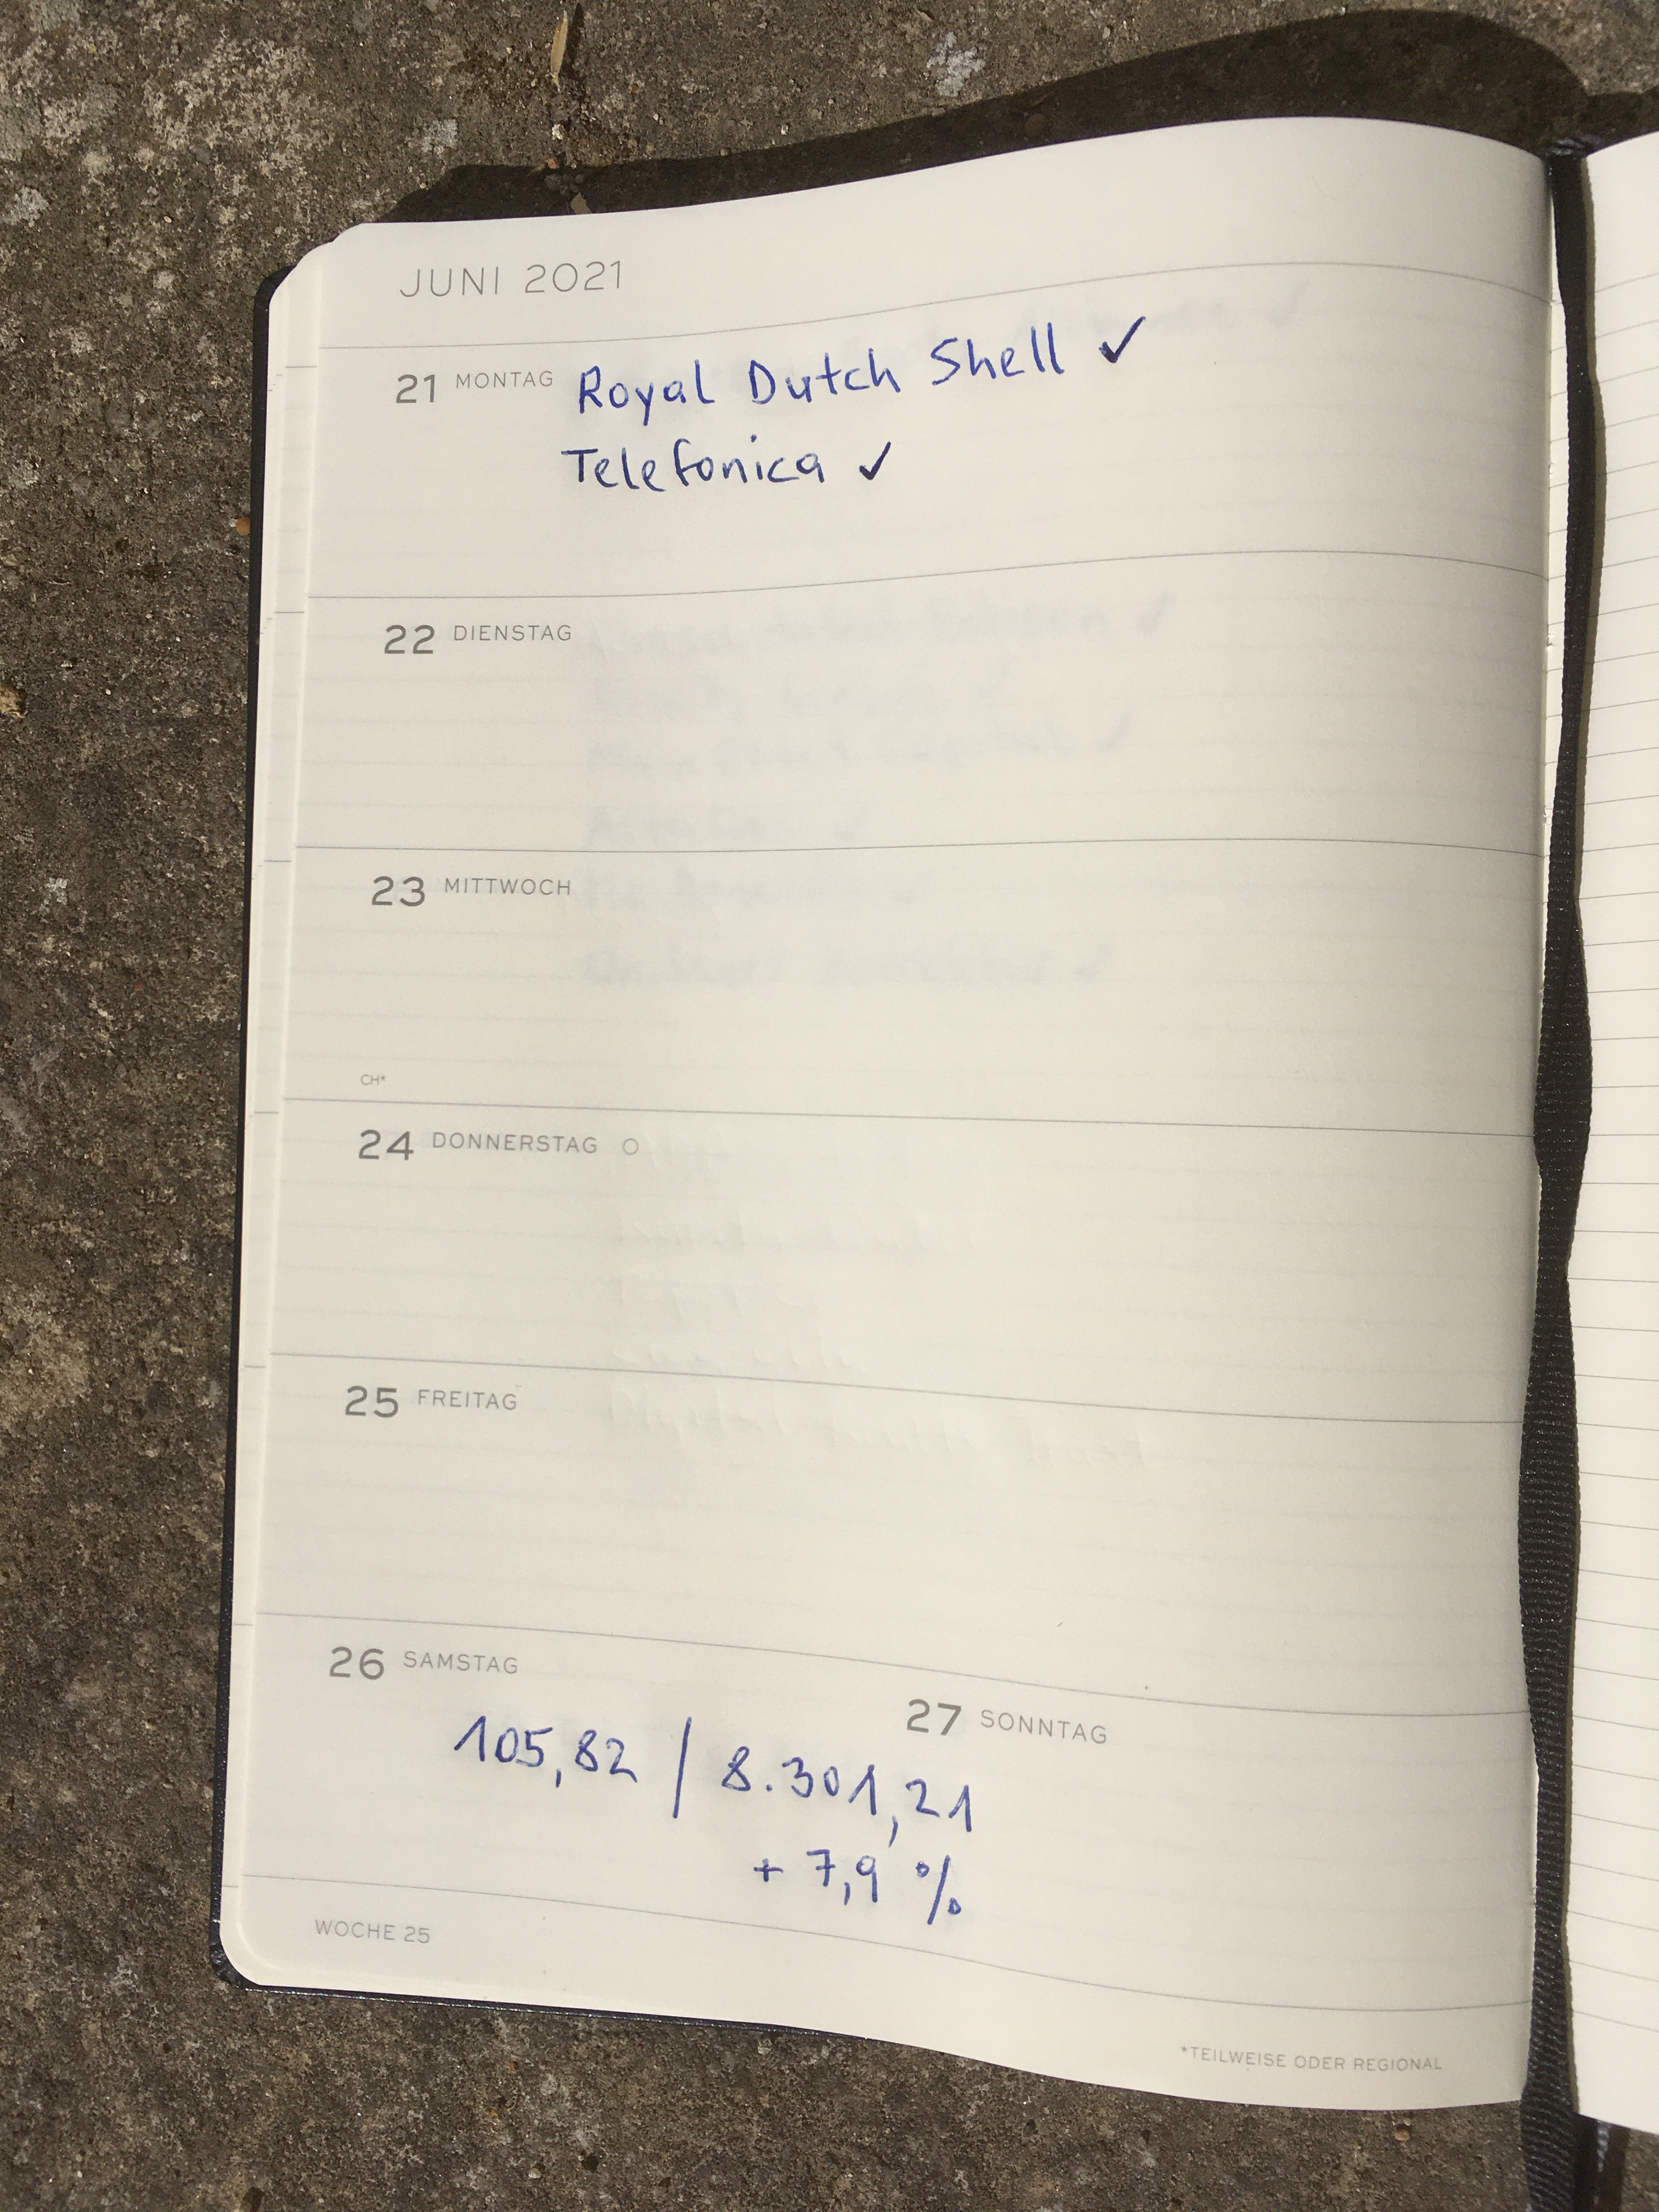 JUNI 2021
21 MONTAG Royal Dutch Shell ✓
Telefonica ✓
22 DIENSTAG
23 MITTWOCH
CH*
24 DONNERSTAG
25 FREITAG
26 SAMSTAG
27 SONNTAG
105,82 / 8.301,21
+ 7,9 %
WOCHE 25
*TEILWEISE ODER REGIONAL